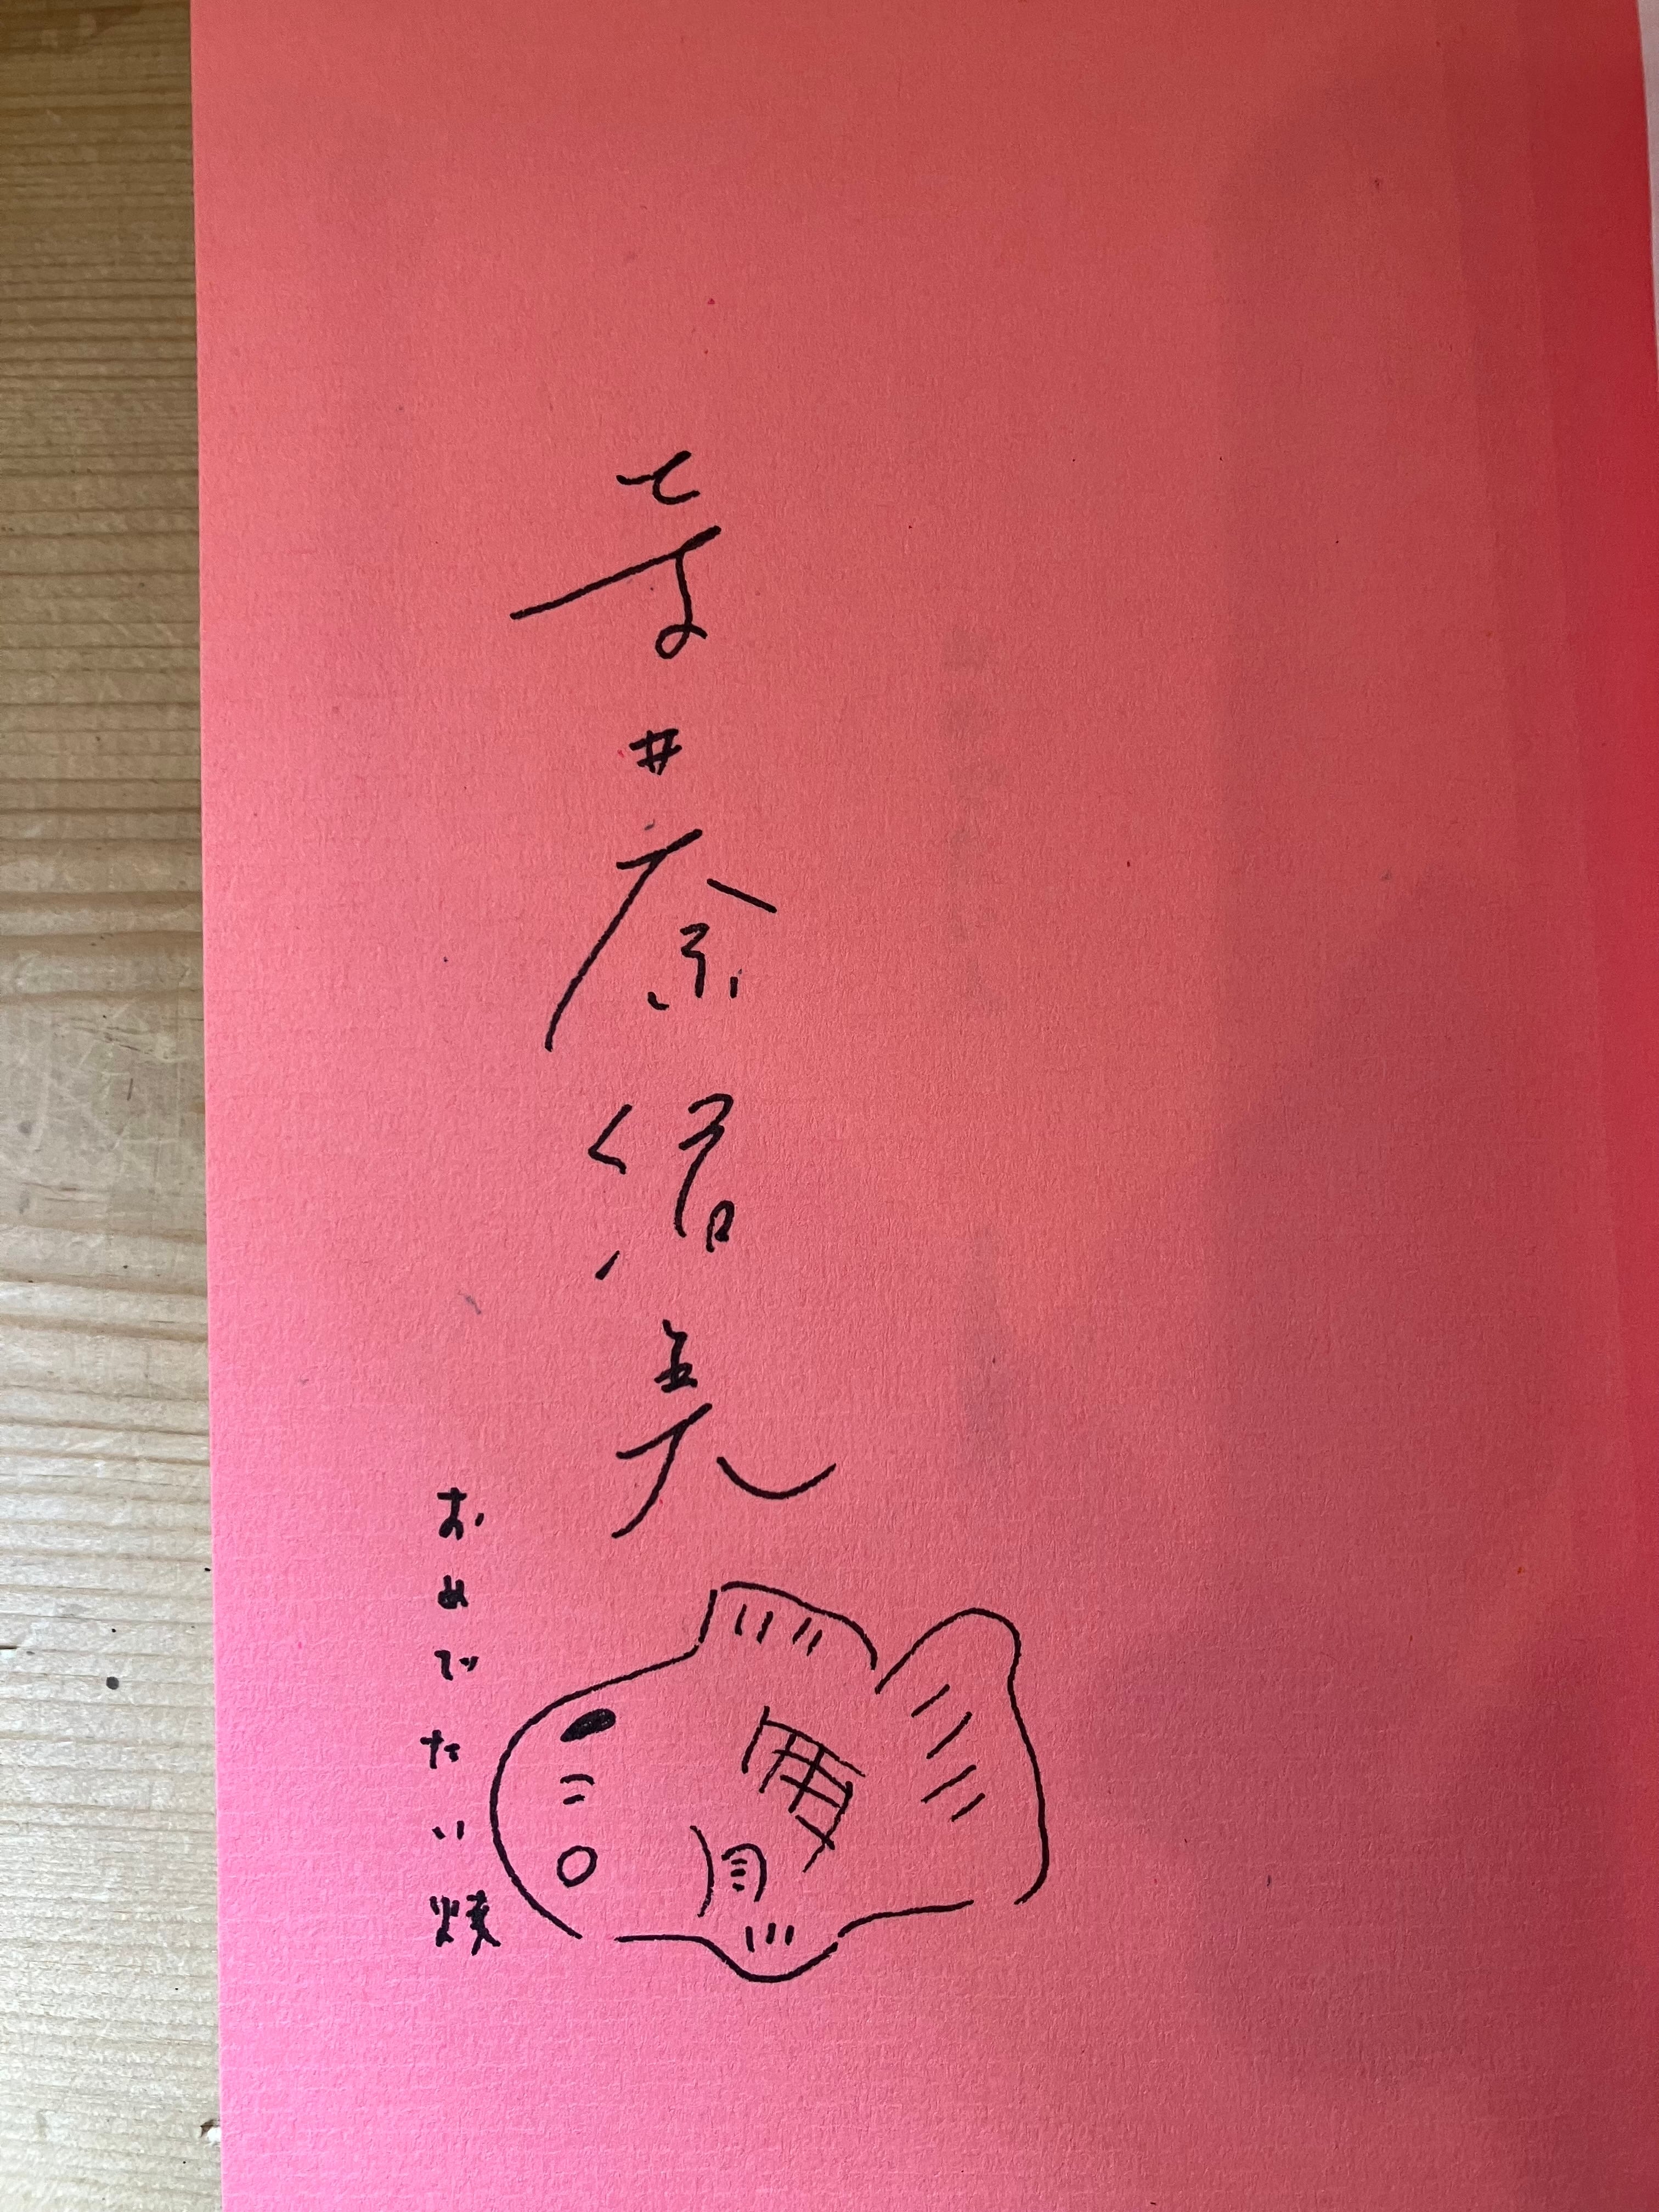 寺井奈緒美
おめでたい焼